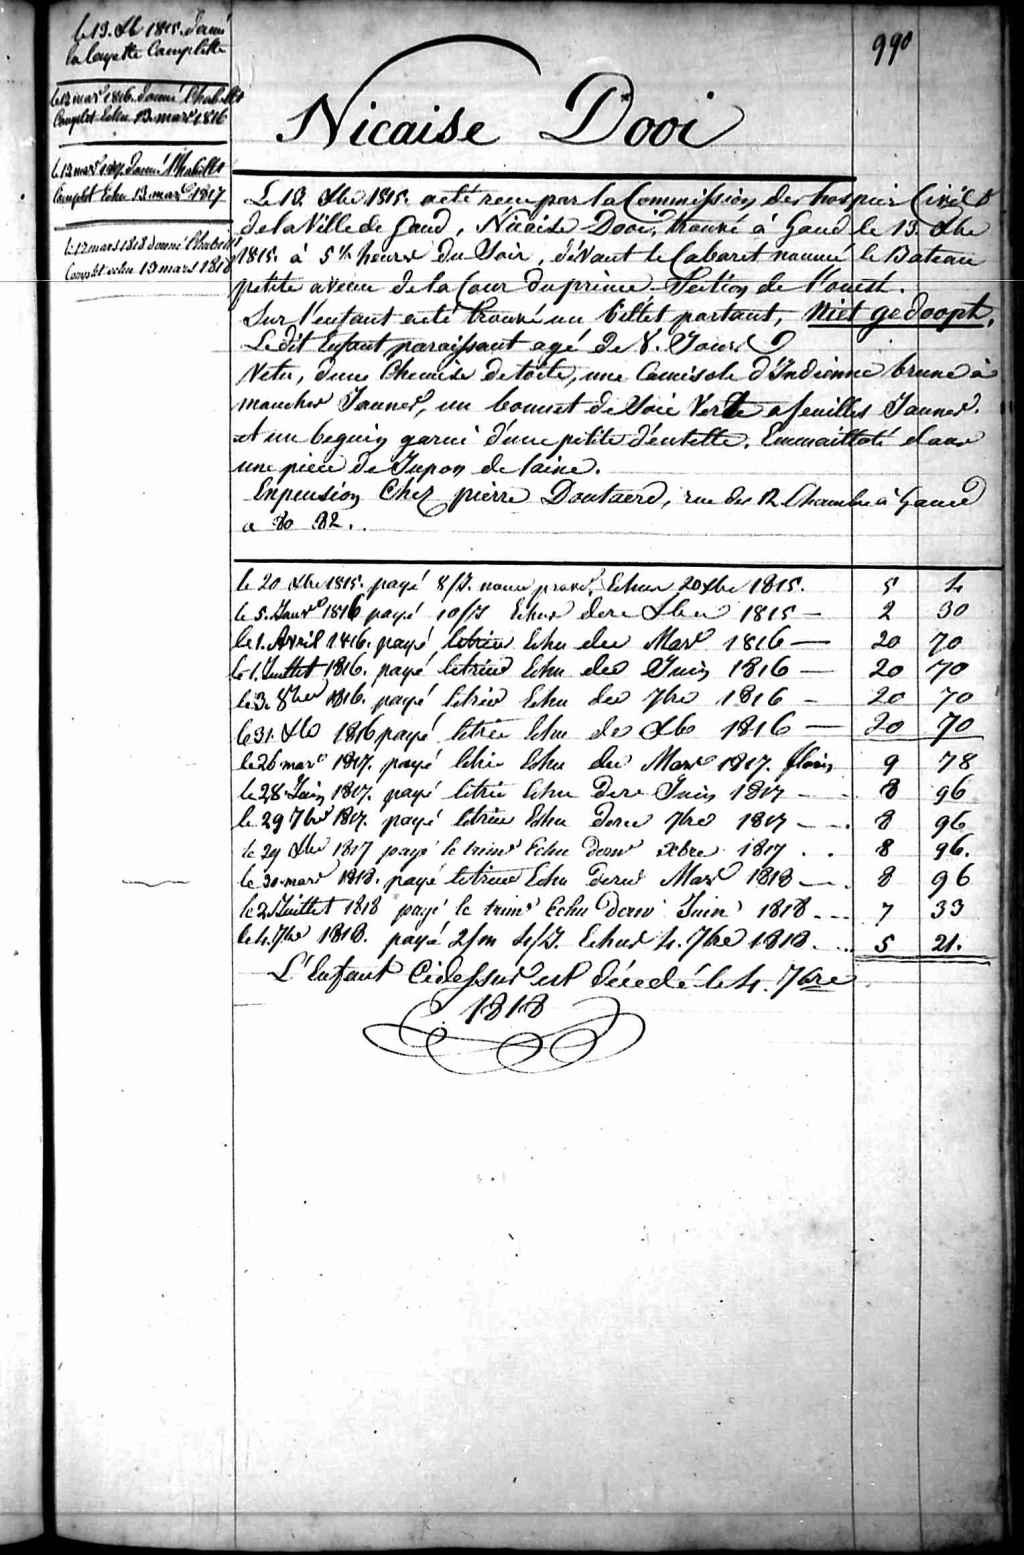 le 13. Xb 1815. donné
la layette Complette
le 13 mars 1816. donné l'habillt
Complet Echu 13 mars 1816
le 13 mars 1817. donné l'habillt
Complet Echu 13 mars 1817
le 13 mars 1818 donné l'habillt
Complet echu 13 mars 1818
990
Nicaise Dooi
Le 13. Xbre 1815. a été recu par la Commission des hospices Civils
de la Ville de Gand, Nicaise Dooi, trouvé à Gand le 13. Xbre
1815. à 5 ½ heures du Soir, dévant le Cabaret nommé le Bateau
petite avenue de la Cour du prince Section de l'ouest.
Sur l'enfant a été trouvé un billet portant, Niet gedoopt.
Le dit Enfant paraissant agé de 8. Jours
Vetu, d'une Chemise de toile, une Camisole d'Indienne brune à
manches Jaunes, un bonnet de Soie Verte a feuilles Jaunes.
et un beguin garni d'une petite déntelle. Emmailloté dans
une piece de Jupon de laine.
En pension Chéz pierre Doutaerd, rue des 12 Chambres à Gand
a 80 82.
le 20 Xbre 1815. payé 8/J. nour Echus 20 Xbre 1815. 5 4
le 5. Janvr 1816 payé 10/J Echus dern Xbre 1815 — 2 30
le 1. Avril 1816. payé le trim Echu der Mars 1816 — 20 70
le 1. Juillet 1816. payé le trim Echu der Juin 1816 — 20 70
le 3. 8bre 1816. payé le trim Echu der 7bre 1816 - 20 70
le 31. Xb 1816 payé le trim Echu der Xb 1816 — 20 70
le 26 mars 1817. payé le trim Echu der Mars 1817. florins 9 78
le 28. Juin 1817. payé le trim Echu dern Juin 1817 - - . 8 96
le 29 7bre 1817. payé le trim Echu dern 7bre 1817 - - . 8 96
le 29 Xbre 1817 payé le trimr Echu dernr xbre 1817 . . 8 96.
le 30 mars 1818. payé le trim Echu dern Mars 1818 - . 8 96
le 2 Juillet 1818 payé le trimr Echu dernr Juin 1818 - - - 7 33
le 4. 7bre 1818. payé 2/m 4/J. Echus 4. 7bre 1818 . . . 5 21.
L'Enfant Cidessus est décedé le 4. 7bre
1818